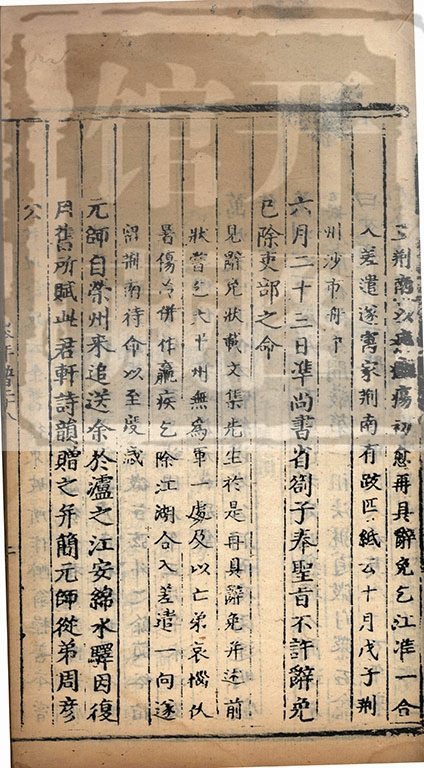 荆南瘍初愈再具辭免乞江淮一合
入差遣遂寓家荆南有跋匹紙云十月戊子荆
州沙市舟中
六月二十三日準尚書省劄子奉聖旨不許辭免
已除吏部之命
見辭免狀載文集先生於是再具辭免并述前
狀嘗乞太平州無為軍一處及以亡弟哀惱伏
暑傷冷併作羸疾乞除江湖合入差遣一向遂
留荆南待命以至度歲
元師自榮州來追送余於瀘之江安綿水驛因復
用舊所賦此君軒詩韻贈之并簡元師從弟周彦
公